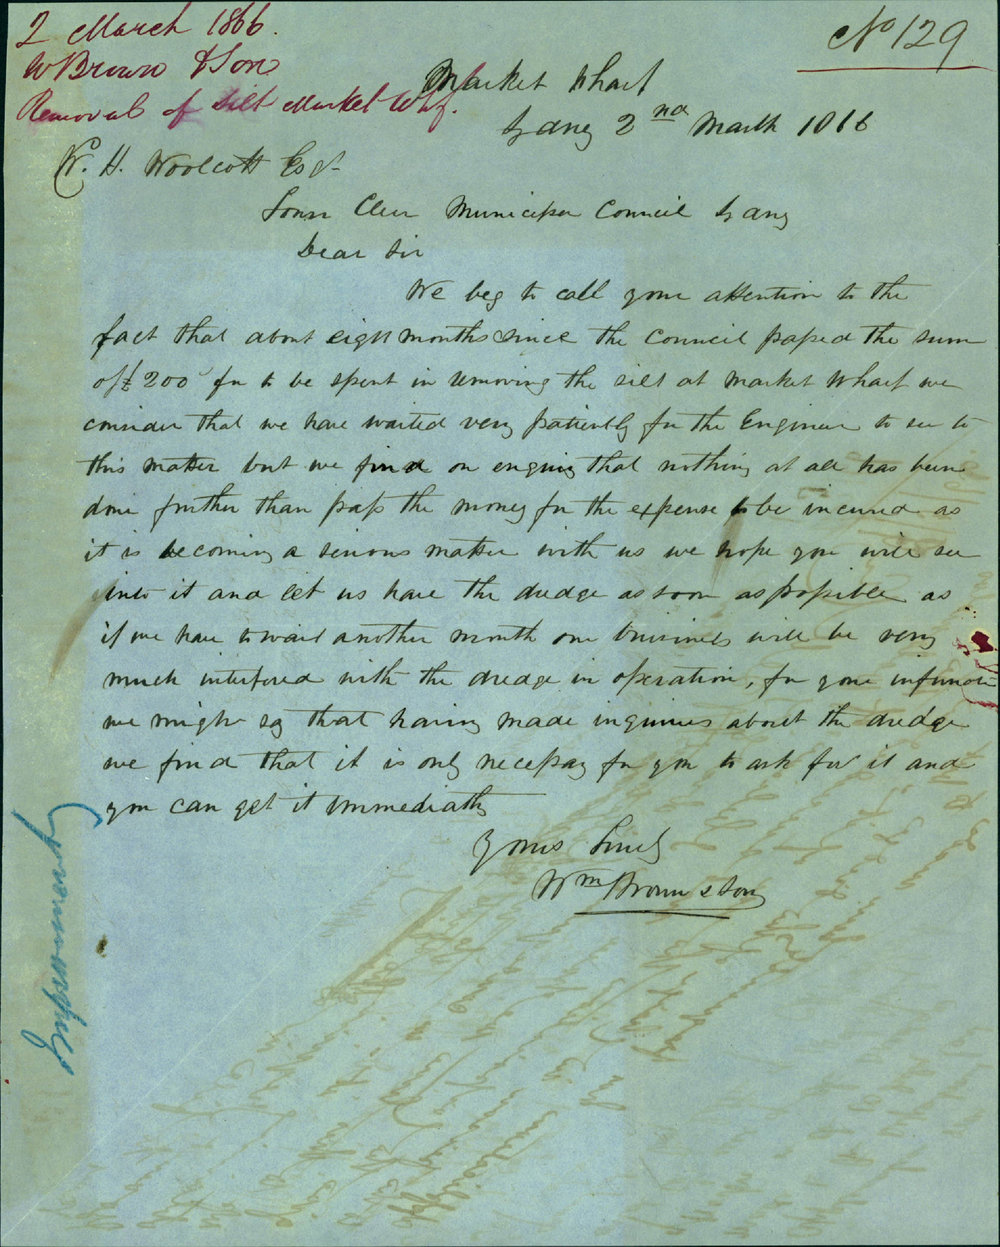 2 March 1866.
W Brown & Son
Removal of Silt Market Whf.
No 129
Market Wharf
Sydney 2nd March 1866
W. H. Woolcott Esqr
Town Clerk Municipal Council Sydney
Dear Sir
We beg to call your attention to the
fact that about eight months since the Council passed the sum
of £200 for to be spent in removing the silt at Market Wharf we
consider that we have waited very patiently for the Engineer to see to
this matter but we find on enquiry that nothing at all has been
done further than pass the money for the expense to be incured as
it is becoming a serious matter with us we hope you will see
into it and let us have the dredge as soon as possible as
if we have to wait another month our business will be very
much interfered with the dredge in operation, for your information
we might say that having made inquiries about the dredge
we find that it is only necessary for you to ask for it and
you can get it immediately
Yours Sincly
Wm Brown & Son